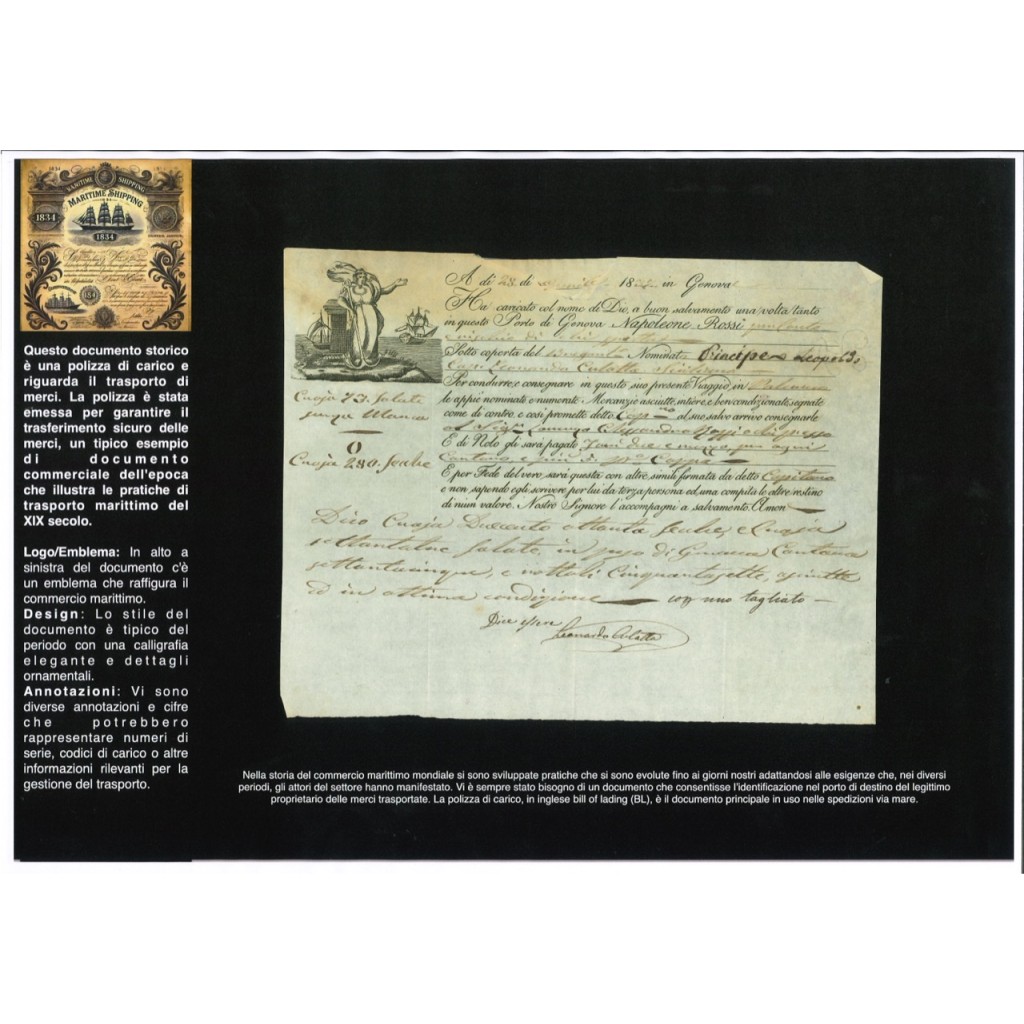 1834
MARITIME SHIPPING
MARITIME SHIPPING
1834
1834
Questo documento storico
è una polizza di carico e
riguarda il trasporto di
merci. La polizza è stata
emessa per garantire il
trasferimento sicuro delle
merci, un tipico esempio
di documento
commerciale dell'epoca
che illustra le pratiche di
trasporto marittimo del
XIX secolo.
Logo/Emblema: In alto a
sinistra del documento c'è
un emblema che raffigura il
commercio marittimo.
Design: Lo stile del
documento è tipico del
periodo con una calligrafia
elegante e dettagli
ornamentali.
Annotazioni: Vi sono
diverse annotazioni e cifre
che potrebbero
rappresentare numeri di
serie, codici di carico o altre
informazioni rilevanti per la
gestione del trasporto.
A dì 28 di 18 in Genova
Ha caricato col nome di Dio, a buon salvamento una volta tanto
in questo Porto di Genova Napoleone Rossi
Sotto coperta del Nominato Principe Leopoldo
Cap. Leonardo Culotta
Per condurre, e consegnare in questo suo presente Viaggio in
le appiè nominate e numerate Mercanzie asciutte, intiere, e ben condizionate, segnate
come di contro, e così promette detto Cap.no al suo salvo arrivo consegnarle
al Sig.
E di Nolo gli sarà pagato
Cantaro
E per Fede del vero, sarà questa con altre simili firmata da detto Capitano
e non sapendo egli scrivere per lui da terza persona ed una compita le altre restino
di niun valore. Nostro Signore l'accompagni a salvamento. Amen
Cuoja 73. Salate
senza Marca
0
Cuoja 280. Secche
Dico Cuoja Duecento ottanta Secche, e Cuoja
settantatre Salate, in peso di Cantara
settantacinque, e rottoli Cinquantasette, asciutte
ed in ottima condizione con uno tagliato
Dico essere
Leonardo Culotta
Nella storia del commercio marittimo mondiale si sono sviluppate pratiche che si sono evolute fino ai giorni nostri adattandosi alle esigenze che, nei diversi
periodi, gli attori del settore hanno manifestato. Vi è sempre stato bisogno di un documento che consentisse l'identificazione nel porto di destino del legittimo
proprietario delle merci trasportate. La polizza di carico, in inglese bill of lading (BL), è il documento principale in uso nelle spedizioni via mare.